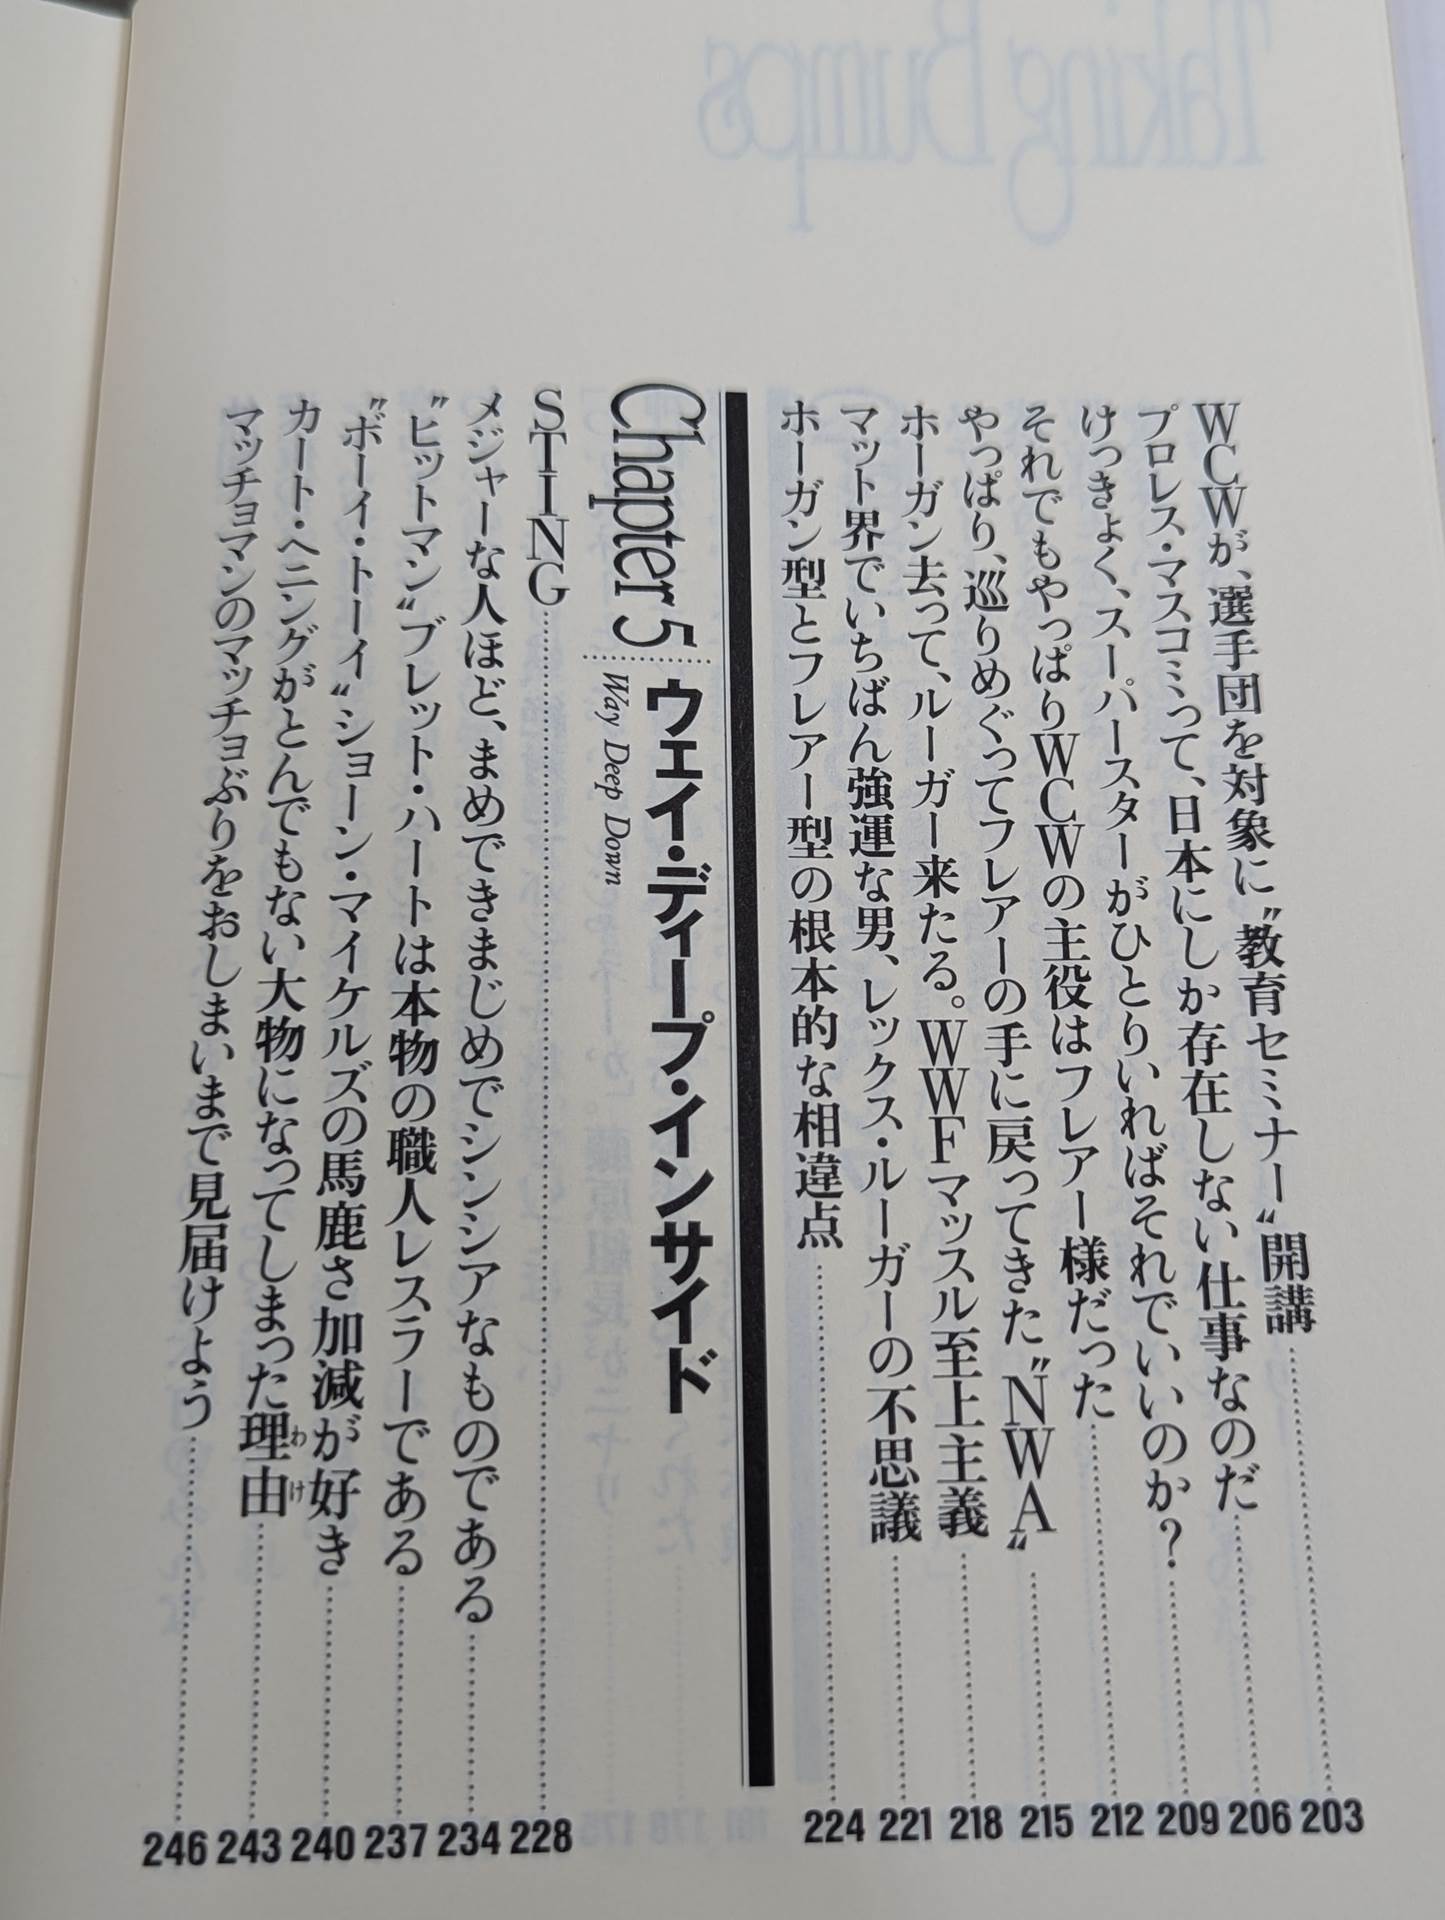 WCWが、選手団を対象に〝教育セミナー〟開講 203
プロレス・マスコミって、日本にしか存在しない仕事なのだ 206
けっきょく、スーパースターがひとりいればそれでいいのか？ 209
それでもやっぱりWCWの主役はフレアー様だった 212
やっぱり、巡りめぐってフレアーの手に戻ってきた〝NWA〟 215
ホーガン去って、ルーガー来たる。WWFマッスル至上主義 218
マット界でいちばん強運な男、レックス・ルーガーの不思議 221
ホーガン型とフレアー型の根本的な相違点 224
Chapter 5 ウェイ・ディープ・インサイド
Way Deep Down
STING 228
メジャーな人ほど、まめできまじめでシンシアなものである 234
〝ヒットマン〟ブレット・ハートは本物の職人レスラーである 237
〝ボーイ・トーイ〟ショーン・マイケルズの馬鹿さ加減が好き 240
カート・ヘニングがとんでもない大物になってしまった理由 243
わけ
マッチョマンのマッチョぶりをおしまいまで見届けよう 246
Taking Bumps